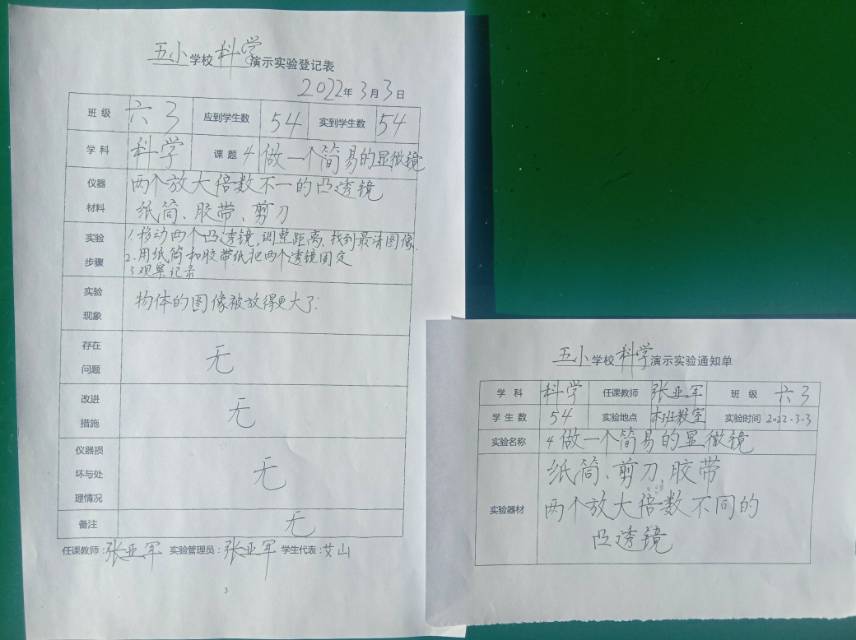 五小学校科学演示实验登记表
2022年3月3日
班级 六3 应到学生数 54 实到学生数 54
学科 科学 课题 4 做一个简易的显微镜
仪器材料 两个放大倍数不一的凸透镜
纸筒、胶带、剪刀
实验步骤 1.移动两个凸透镜,调整距离,找到最清图像.
2.用纸筒和胶带纸把两个透镜固定
3.观察记录
实验现象 物体的图像被放得更大了.
存在问题 无
改进措施 无
仪器损坏与处理情况 无
备注 无
任课教师:张亚军 实验管理员:张亚军 学生代表:艾山
3
五小学校科学演示实验通知单
学科 科学 任课教师 张亚军 班级 六3
学生数 54 实验地点 本班教室 实验时间 2022.3.3
实验名称 4 做一个简易的显微镜
实验器材 纸筒、剪刀、胶带
两个放大倍数不同的
凸透镜